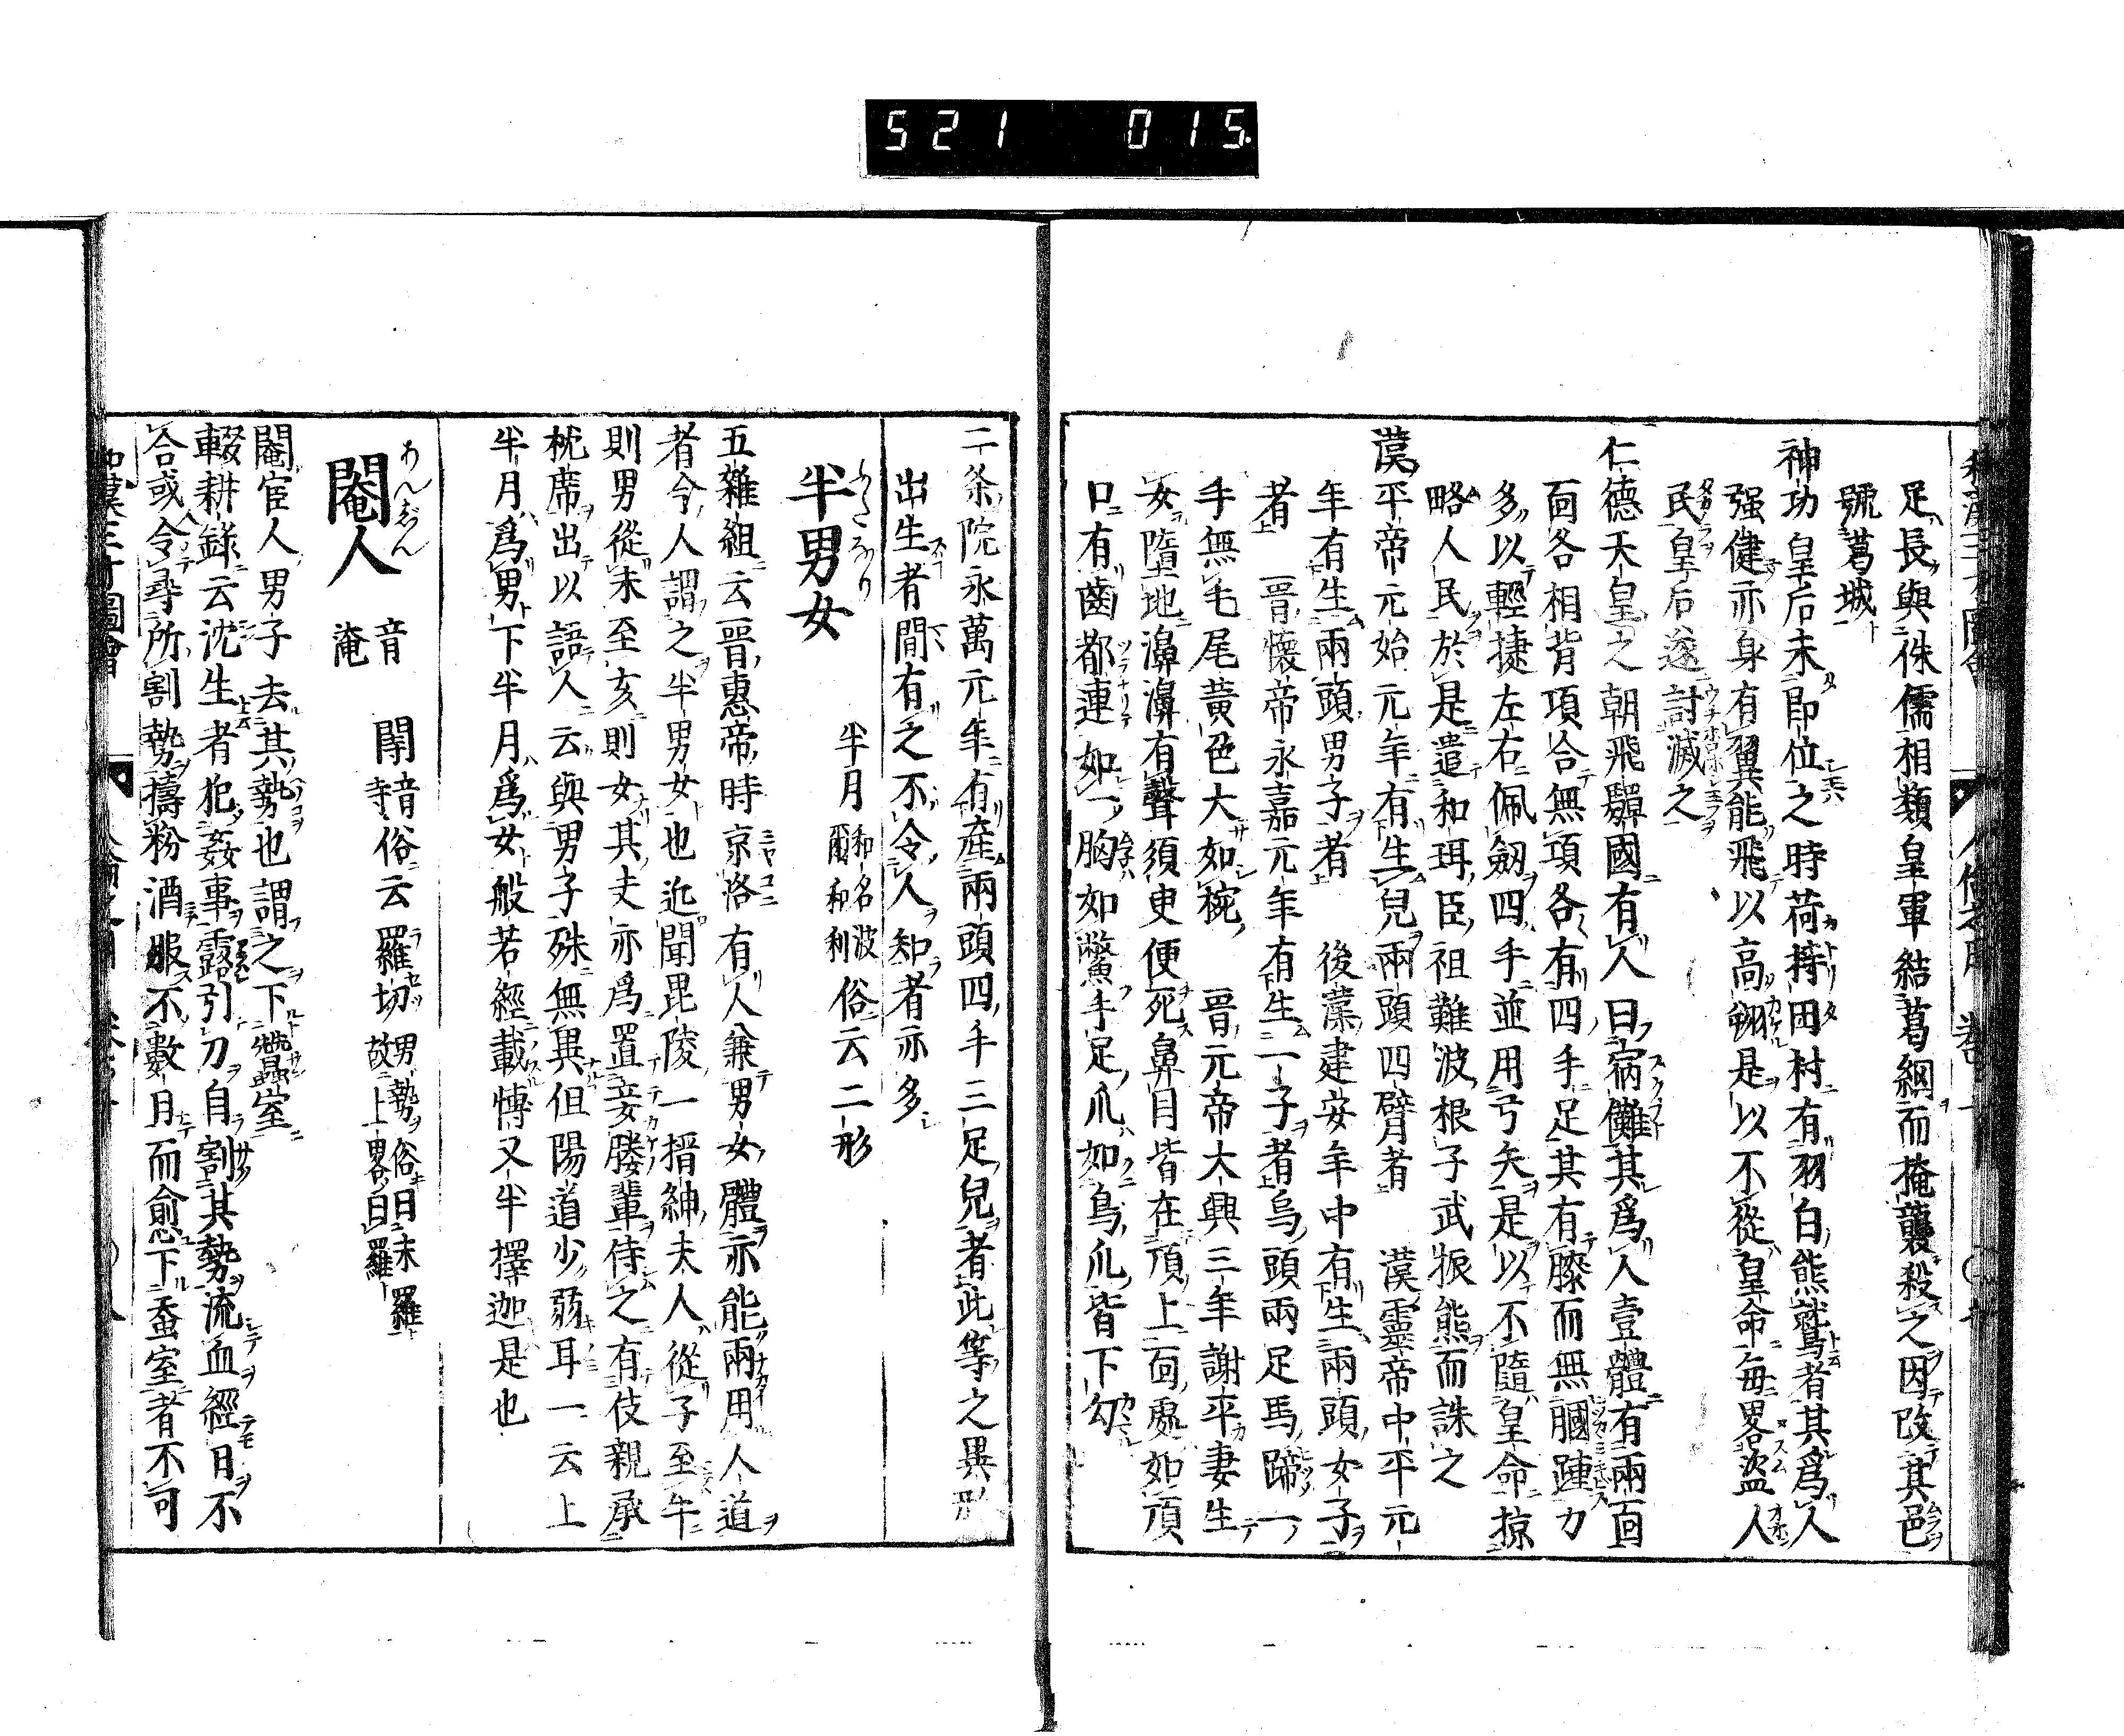 521 015.
足長與侏儒相類皇軍結葛網而掩襲殺之因改其邑
號葛城
神功皇后未卽位之時荷持田村有羽白熊鷲者其爲人
强健亦身有翼能飛以高翔是以不從皇命每畧盜人
民皇后遂討滅之
仁德天皇之朝飛驒國有人曰宿儺其爲人壹體有兩面
面各相背項合無項各有四手足其有膝而無膕踵力
多以輕捷左右佩劒四手並用弓矢是以不隨皇命掠
略人民於是遣和珥臣祖難波根子武振熊而誅之
漢平帝元始元年有生兒兩頭四臂者 漢靈帝中平元
年有生兩頭男子者 後漢建安年中有生兩頭女子
者 晉懷帝永嘉元年有生一子者烏頭兩足馬蹄一
手無毛尾黃色大如椀 晉元帝太興三年謝平妻生
女墮地濞濞有聲須臾便死鼻目皆在頂上面處如項
口有齒都連如一胸如鱉手足爪如鳥爪皆下勾
二条院永萬元年有産兩頭四手三足兒者此等之異形
出生者間有之不令人知者亦多
半男女 ふたなり 半月 和名波爾和利 俗云二形
五雜組云晋惠帝時京洛有人兼男女體亦能兩用人道
者今人謂之半男女也近聞毘陵一搢紳夫人從子至午
則男從未至亥則女其夫亦爲置妾媵輩侍之有伎親承
枕席出以語人云與男子殊無異但陽道少弱耳一云上
半月爲男下半月爲女般若經載博叉半擇迦是也
閹人 あんじん 音淹 閹音寺俗云羅切 男勢俗曰末羅故上畧曰羅
閹宦人男子去其勢也謂之下蠶室
輟耕錄云沈生者犯姦事露引刀自割其勢流血經日不
合或令尋所割勢擣粉酒服不數月而愈下蚕室者不可